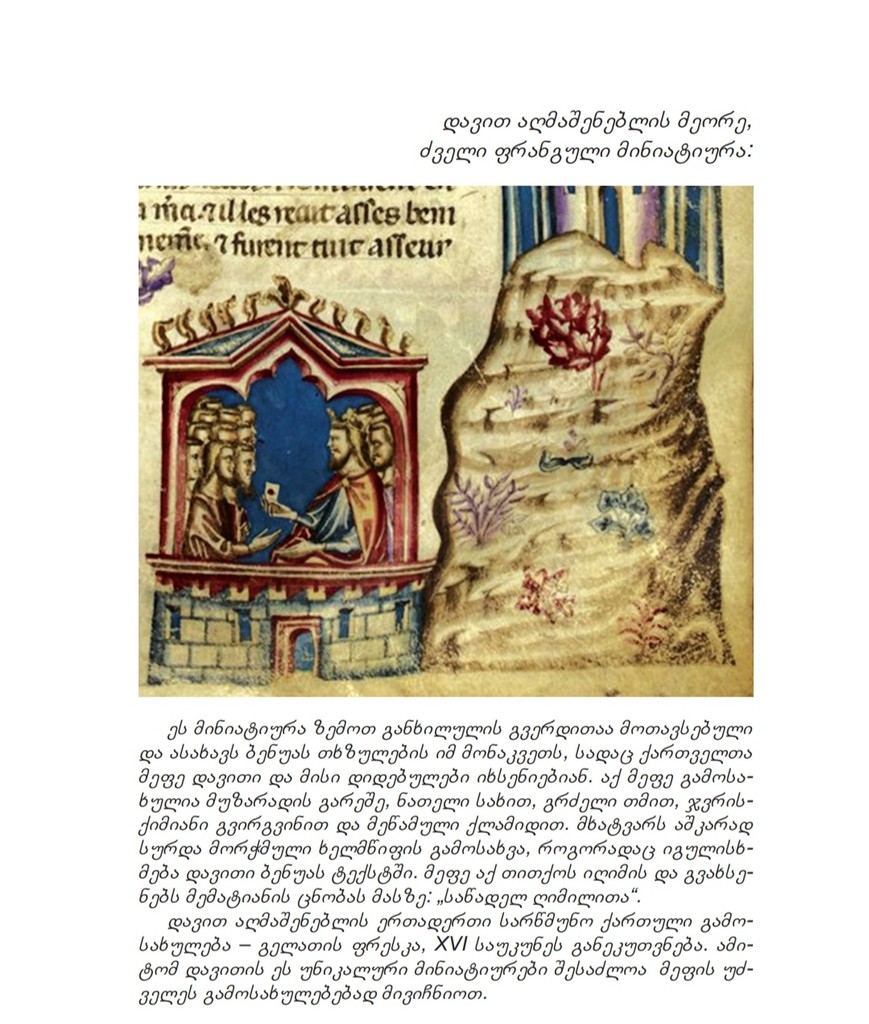 დავით აღმაშენებლის მეორე,
ძველი ფრანგული მინიატიურა:
ეს მინიატიურა ზემოთ განხილულის გვერდითაა მოთავსებული
და ასახავს ბენუას თხზულების იმ მონაკვეთს, სადაც ქართველთა
მეფე დავითი და მისი დიდებულები იხსენიებიან. აქ მეფე გამოსა-
ხულია მუზარადის გარეშე, ნათელი სახით, გრძელი თმით, ჯვრის-
ქიმიანი გვირგვინით და მეწამული ქლამიდით. მხატვარს აშკარად
სურდა მორჭმული ხელმწიფის გამოსახვა, როგორადაც იგულისხ-
მება დავითი ბენუას ტექსტში. მეფე აქ თითქოს იღიმის და გვახსე-
ნებს მემატიანის ცნობას მასზე: „საწადელ ღიმილითა“.
დავით აღმაშენებლის ერთადერთი სარწმუნო ქართული გამო-
სახულება – გელათის ფრესკა, XVI საუკუნეს განეკუთვნება. ამი-
ტომ დავითის ეს უნიკალური მინიატიურები შესაძლოა მეფის უძ-
ველეს გამოსახულებებად მივიჩნიოთ.